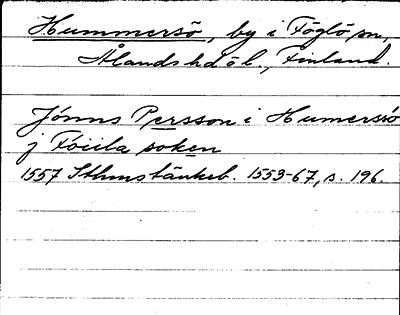 Hummersö, by i Föglö sn,
Ålands hd o l., Finland.
Jönns Persson i Humersö
j Föiila soken
1557 Sthms tänkeb. 1553-67, s. 196.